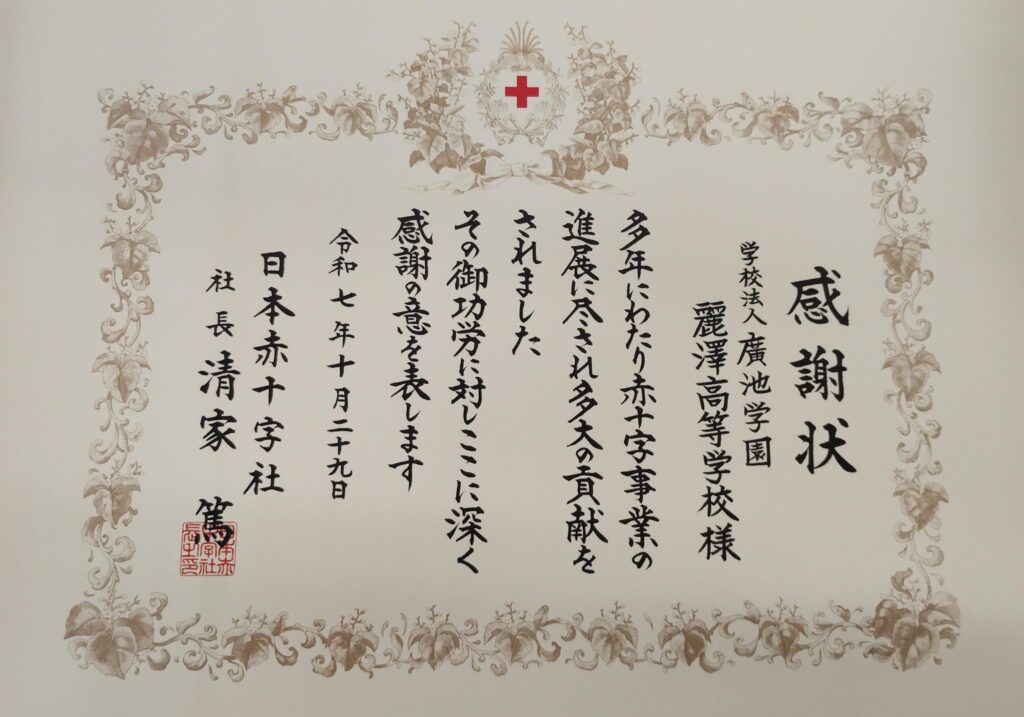 感謝状
学校法人 廣池学園
麗澤高等学校様
多年にわたり赤十字事業の
進展に尽され多大の貢献を
されました
その御功労に対しここに深く
感謝の意を表します
令和七年十月二十九日
日本赤十字社
社長 清家 篤